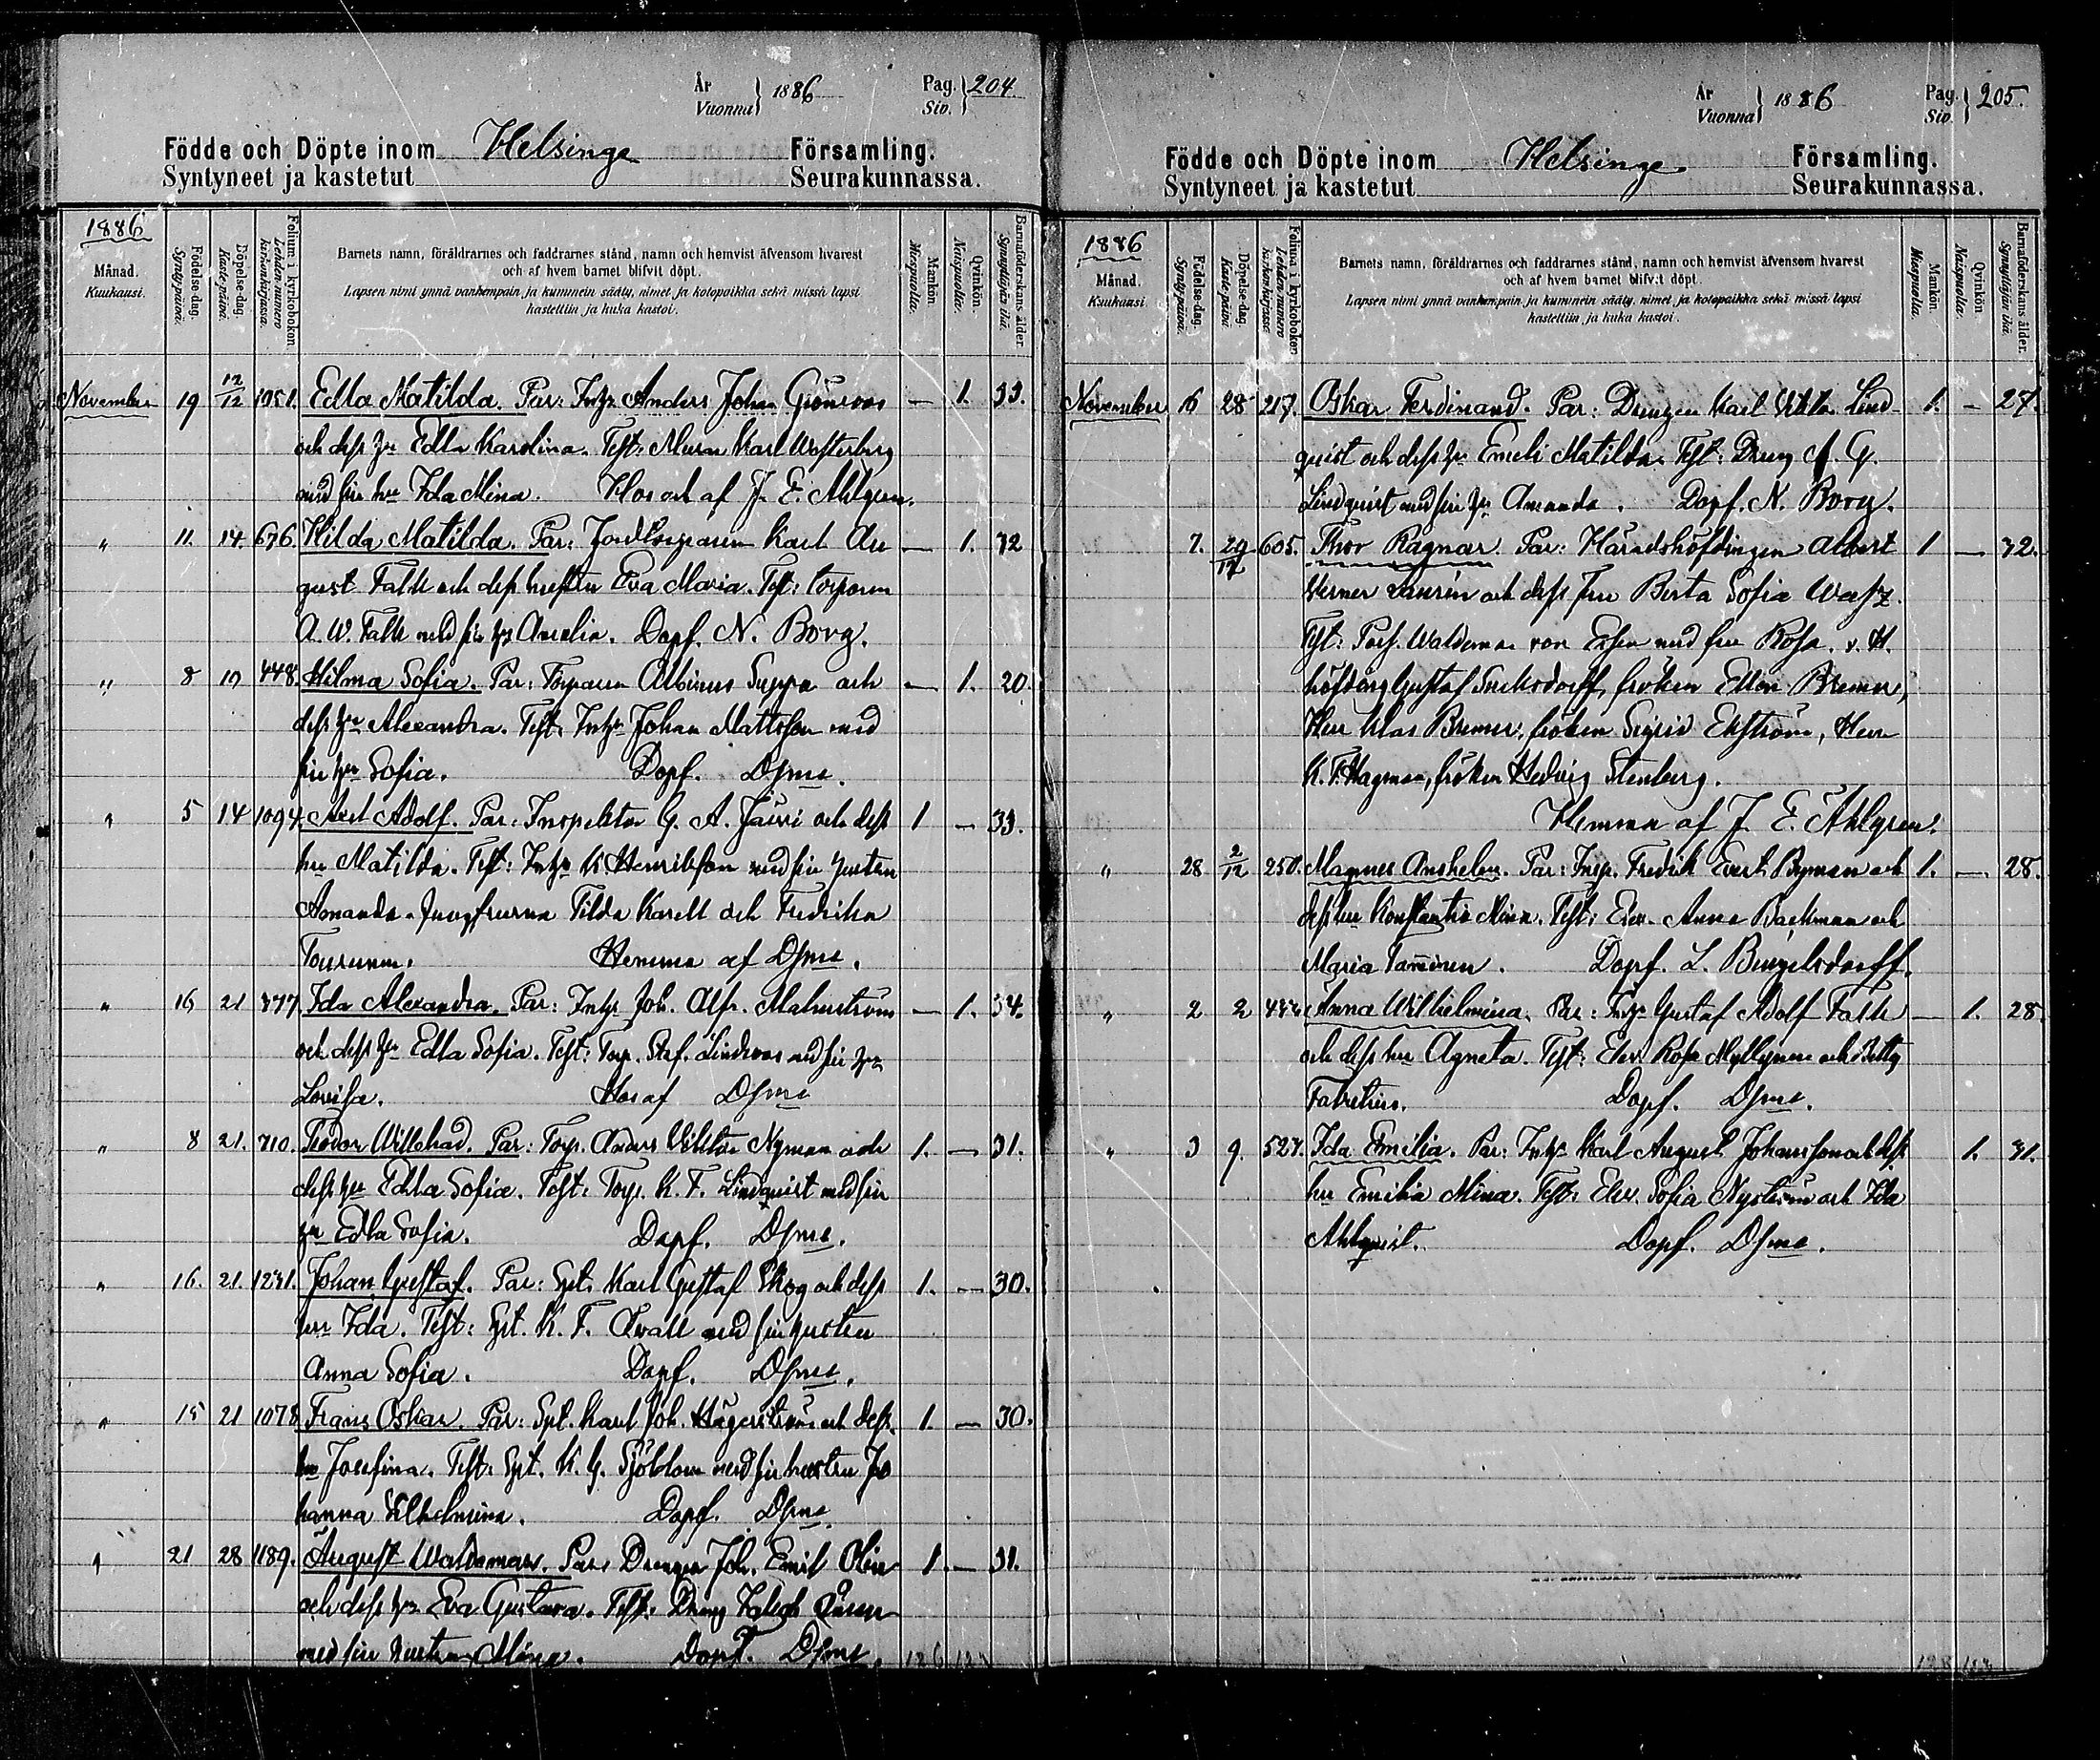 År
Vuonna } 1886
Pag.
Siv. } 204
Födde och Döpte inom Helsinge Församling.
Syntyneet ja kastetut Seurakunnassa.
1886
Månad.
Kuukausi.
Födelse-dag.
Synty-päivä.
Döpelse-dag.
Kaste-päivä.
Folium i kyrkoboken
Lehden-numero kirkonkirjassa.
Barnets namn, föräldrarnes och faddrarnes stånd, namn och hemvist äfvensom hvarest
och af hvem barnet blifvit döpt.
Lapsen nimi ynnä vanhempain ja kummein sääty, nimet ja kotopaikka sekä missä lapsi
kastettiin ja kuka kastoi.
Mankön.
Miespuolia.
Qvinkön.
Naispuolia.
Barnaföderskans ålder.
Synnyttäjän ikä.
November 19 12/12 1051. Edla Matilda. Par: Inhs Anders Johan Grönroos — 1. 33.
och dess hu Edla Karolina. Test: Murar Karl Westerberg
med sin hu Ida Mina. Hos och af J. E. Ahlgren.
" 11. 14. 676. Hilda Matilda. Par: Jordtorparen Karl Au — 1. 32
gust Falk och dess hustru Eva Maria. Test: torparen
A. W. Falk med sin hu Amelia. Dopf. N. Borg.
" 8 10 448. Hilma Sofia. Par: Torparen Albinus Suppa och — 1. 20.
dess hu Alexandra. Test: Inhs Johan Mattsson med
sin hu Sofia. Dopf. Dsme.
" 5 14 1094. Axel Adolf. Par: Inspektor G. A. och dess 1 — 33.
hu Matilda. Test: Inhs K. Henriksson med sin hustru
Amanda. Jungfrurna Tilda Karell och Fredrika
Hemma af Dsme.
" 16 21 377. Ida Alexandra. Par: Inhs Joh. Alfr. Malmström — 1. 34.
och dess hu Edla Sofia. Test: Torp. Lindroos med sin hu
Lovisa. Hos af Dsme
" 8 21. 710. Teodor Willehad. Par: Torp. Anders Viktor Nyman och 1. — 31.
dess hu Edla Sofia. Test: Torp. K. F. Lindquist med sin
hu Edla Sofia. Dopf. Dsme.
" 16. 21. 1231. Johan Gustaf. Par: Spt. Karl Gustaf Skog och dess 1. — 30.
hu Ida. Test: Spt. K. F. Qvall med sin hustru
Anna Sofia. Dopf. Dsme.
" 15 21 1078. Frans Oskar. Par: Spt. Karl Joh. Hägerström och dess 1. — 30.
hu Josefina. Test: Spt. K. G. Sjöblom med sin hustru Jo
hanna Vilhelmina. Dopf. Dsme
" 21 28 1189. August Waldemar. Par: Drengen Joh. Emil Olin 1. — 31.
och dess hu Eva Gustava. Test: Dreng
med sin hustru Mina. Dopf. Dsme.
År
Vuonna } 1886
Pag.
Siv. } 205.
Födde och Döpte inom Helsinge Församling.
Syntyneet ja kastetut Seurakunnassa.
1886
Månad.
Kuukausi
Födelse-dag.
Synty-päivä.
Döpelse-dag.
Kaste-päivä
Folium i kyrkoboken
Lehden-numero kirkonkirjassa
Barnets namn, föräldrarnes och faddrarnes stånd, namn och hemvist äfvensom hvarest
och af hvem barnet blifvit döpt.
Lapsen nimi ynnä vanhempain ja kummein sääty, nimet ja kotopaikka sekä missä lapsi
kastettiin ja kuka kastoi.
Mankön.
Miespuolia.
Qvinkön
Naispuolia.
Barnaföderskans ålder.
Synnyttäjän ikä.
November 16 28 217. Oskar Ferdinand. Par: Drengen Karl Viktor Lind- 1. — 27.
quist och dess hu Emeli Matilda. Test: Dreng A. G.
Lindquist med sin hu Amanda. Dopf. N. Borg.
7. 29/12 605. Thor Ragnar. Par: Häradshöfdingen Albert 1 — 32.
Verner Laurén och dess fru Berta Sofia Wasz.
Test: Prof. Waldemar von Essen med fru Rosa. v. H.
höfding Gustaf Snellsdorff, fröken Ellen Bremer,
Herr Klas Bremer, fröken Sigrid Ekström, Herr
K. F. Hagman, fröken Hedvig Stenberg.
Hemma af J. E. Ahlgren.
" 28 2/12 250. Magnus Anshelm. Par: Insp. Fredrik Evert Byman och 1. — 28.
dess hu Konstantia Mina. Test: Elev. Anna Backman och
Maria Tamminen. Dopf. L. Bengelsdorff.
" 2 2 Anna Wilhelmina. Par: Inhs Gustaf Adolf Falk — 1. 28.
och dess hu Agneta. Test: Elev. Rosa Myllynen och Betty
Fabritius. Dopf. Dsme.
" 3 9. 527. Ida Emilia. Par: Inhs Karl August Johansson och dess 1. 31.
hu Emilia Mina. Test: Elev. Sofia Nyström och Ida
Ahlqvist. Dopf. Dsme.